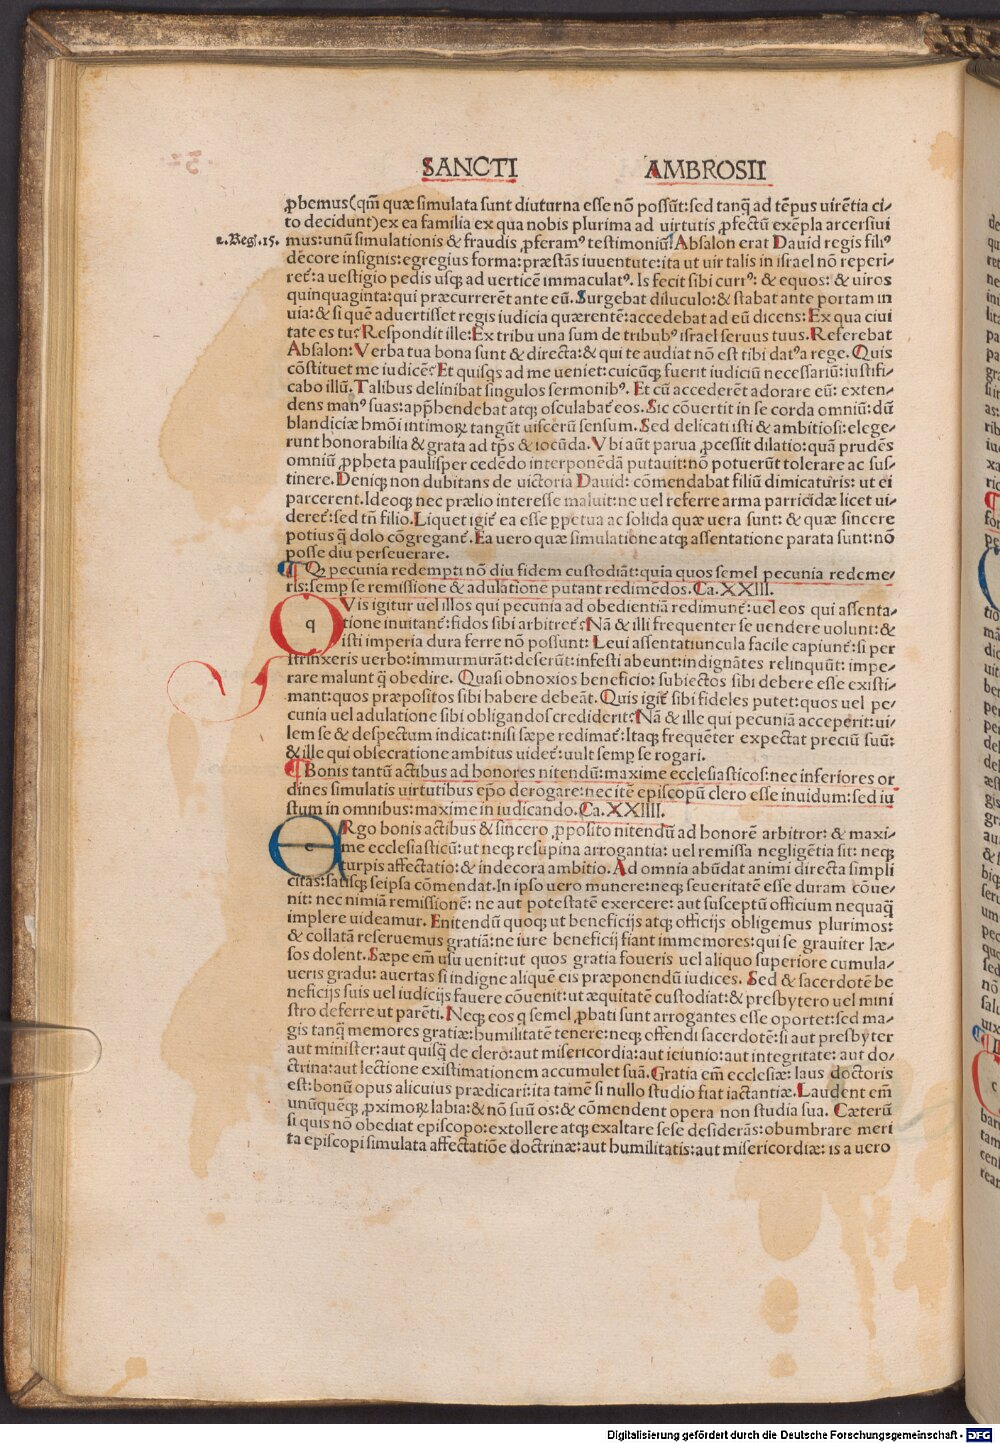 SANCTI AMBROSII
ꝓbemus(qm̃ quæ simulata sunt diuturna esse nõ possũt:sed tanq̃ ad tẽpus uirẽtia ci⸗
to decidunt)ex ea familia ex qua nobis plurima ad uirtutis ꝓfectũ exẽpla arcersiui
2.Reg.15.
mus:unũ simulationis & fraudis ꝓferamꝰ testimoniũ. Absalon erat Dauid regis filiꝰ
decore insignis:egregius forma:præstãs iuuentute:ita ut uir talis in israel nõ reperi⸗
ret̃:a uestigio pedis usqꝫ ad uerticẽ immaculatꝰ. Is fecit sibi currꝰ: & equos: & uiros
quinquaginta:qui præcurrerẽt ante eũ. Surgebat diluculo:& stabat ante portam in
uia:& si quẽ aduertisset regis iudicia quærentẽ:accedebat ad eũ dicens:Ex qua ciui
tate es tu? Respondit ille:Ex tribu una sum de tribubꝰ israel seruus tuus. Referebat
Absalon:Verba tua bona sunt & directa:& qui te audiat nõ est tibi datꝰ a rege. Quis
cõstituet me iudicẽ? Et quisqs ad me ueniet:cuicũqꝫ fuerit iudiciũ necessariũ:iustifi⸗
cabo illũ. Talibus delinibat singulos sermonibꝰ. Et cũ accederẽt adorare eũ: exten⸗
dens manꝰ suas:app̃hendebat atqꝫ osculabat̃ eos. Sic cõuertit in se corda omniũ:dũ
blandiciæ hmõi intimoꝝ tangũt uiscerũ sensum. Sed delicati isti & ambitiosi:elege⸗
runt honorabilia & grata ad tp̃s & iocũda. Vbi aũt parua ꝓcessit dilatio:quã prudẽs
omniũ ꝓpheta paulisper cedẽdo interponẽdã putauit:nõ potuerũt tolerare ac sus⸗
tinere. Deniqꝫ non dubitans de uictoria Dauid: cõmendabat filiũ dimicaturis: ut ei
parcerent. Ideoqꝫ nec prælio interesse maluit:ne uel referre arma parricidæ licet ui⸗
deret̃:sed tñ filio. Liquet igit̃ ea esse ꝑpetua ac solida quæ uera sunt: & quæ sincere
potius q̃ dolo cõgregant̃. Ea uero quæ simulatione atqꝫ assentatione parata sunt:nõ
posse diu perseuerare.
¶ Qꝫ pecunia redempti nõ diu fidem custodiãt:quia quos semel pecunia redeme⸗
ris:semꝑ se remissione & adulatione putant redimẽdos. Ca.XXIII.
q Vis igitur uel illos qui pecunia ad obedientiã redimunt̃:uel eos qui assenta⸗
tione inuitant̃:fidos sibi arbitret̃? Nã & illi frequenter se uendere uolunt:&
isti imperia dura ferre nõ possunt: Leui assentatiuncula facile capiunt̃:si per
strinxeris uerbo:immurmurãt:deserũt:infesti abeunt:indignãtes relinquũt: impe⸗
rare malunt q̃ obedire. Quasi obnoxios beneficio: subiectos sibi debere esse existi⸗
mant:quos præpositos sibi habere debeãt. Quis igit̃ sibi fideles putet:quos uel pe⸗
cunia uel adulatione sibi obligandos crediderit? Nã & ille qui pecuniã acceperit:ui⸗
lem se & despectum indicat:nisi sæpe redimat̃: Itaqꝫ frequẽter expectat preciũ suũ:
& ille qui obsecratione ambitus uidet̃: uult semꝑ se rogari.
¶ Bonis tantũ actibus ad honores nitendũ:maxime ecclesiasticos:nec inferiores or
dines simulatis uirtutibus ep̃o derogare:nec itẽ episcopũ clero esse inuidum:sed iu
stum in omnibus:maxime in iudicando. Ca.XXIIII.
e Rgo bonis actibus & sincero ꝓposito nitendũ ad honorẽ arbitror: & maxi⸗
me ecclesiasticũ:ut neqꝫ resupina arrogantia: uel remissa negligẽtia sit: neqꝫ
turpis affectatio:& indecora ambitio. Ad omnia abũdat animi directa simpli
citas:satisqꝫ seipsa cõmendat. In ipso uero munere:neqꝫ seueritatẽ esse duram cõue⸗
nit: nec nimiã remissionẽ: ne aut potestatẽ exercere: aut susceptũ officium nequaq̃
implere uideamur. Enitendũ quoqꝫ ut beneficijs atqꝫ officijs obligemus plurimos:
& collatã reseruemus gratiã:ne iure beneficij fiant immemores:qui se grauiter læ⸗
sos dolent. Sæpe em̃ usu uenit:ut quos gratia foueris uel aliquo superiore cumula⸗
ueris gradu: auertas si indigne aliquẽ eis præponendũ iudices. Sed & sacerdotẽ be
neficijs suis uel iudicijs fauere cõuenit:ut æquitatẽ custodiat:& presbytero uel mini
stro deferre ut parẽti. Neqꝫ eos q semel ꝓbati sunt arrogantes esse oportet:sed ma⸗
gis tanq̃ memores gratiæ:humilitatẽ tenere:neqꝫ offendi sacerdotẽ:si aut presbyter
aut minister:aut quisq̃ de clero:aut misericordia:aut ieiunio:aut integritate: aut do⸗
ctrina:aut lectione existimationem accumulet suã. Gratia em̃ ecclesiæ: laus doctoris
est:bonũ opus alicuius prædicari:ita tamẽ si nullo studio fiat iactantiæ. Laudent em̃
unũquẽqꝫ ꝓximoꝝ labia:& nõ suũ os:& cõmendent opera non studia sua. Cæterũ
si quis nõ obediat episcopo:extollere atqꝫ exaltare sese desiderãs:obumbrare meri
ta episcopi simulata affectatiõe doctrinæ:aut humilitatis:aut misericordiæ: is a uero
Digitalisierung gefördert durch die Deutsche Forschungsgemeinschaft - DFG